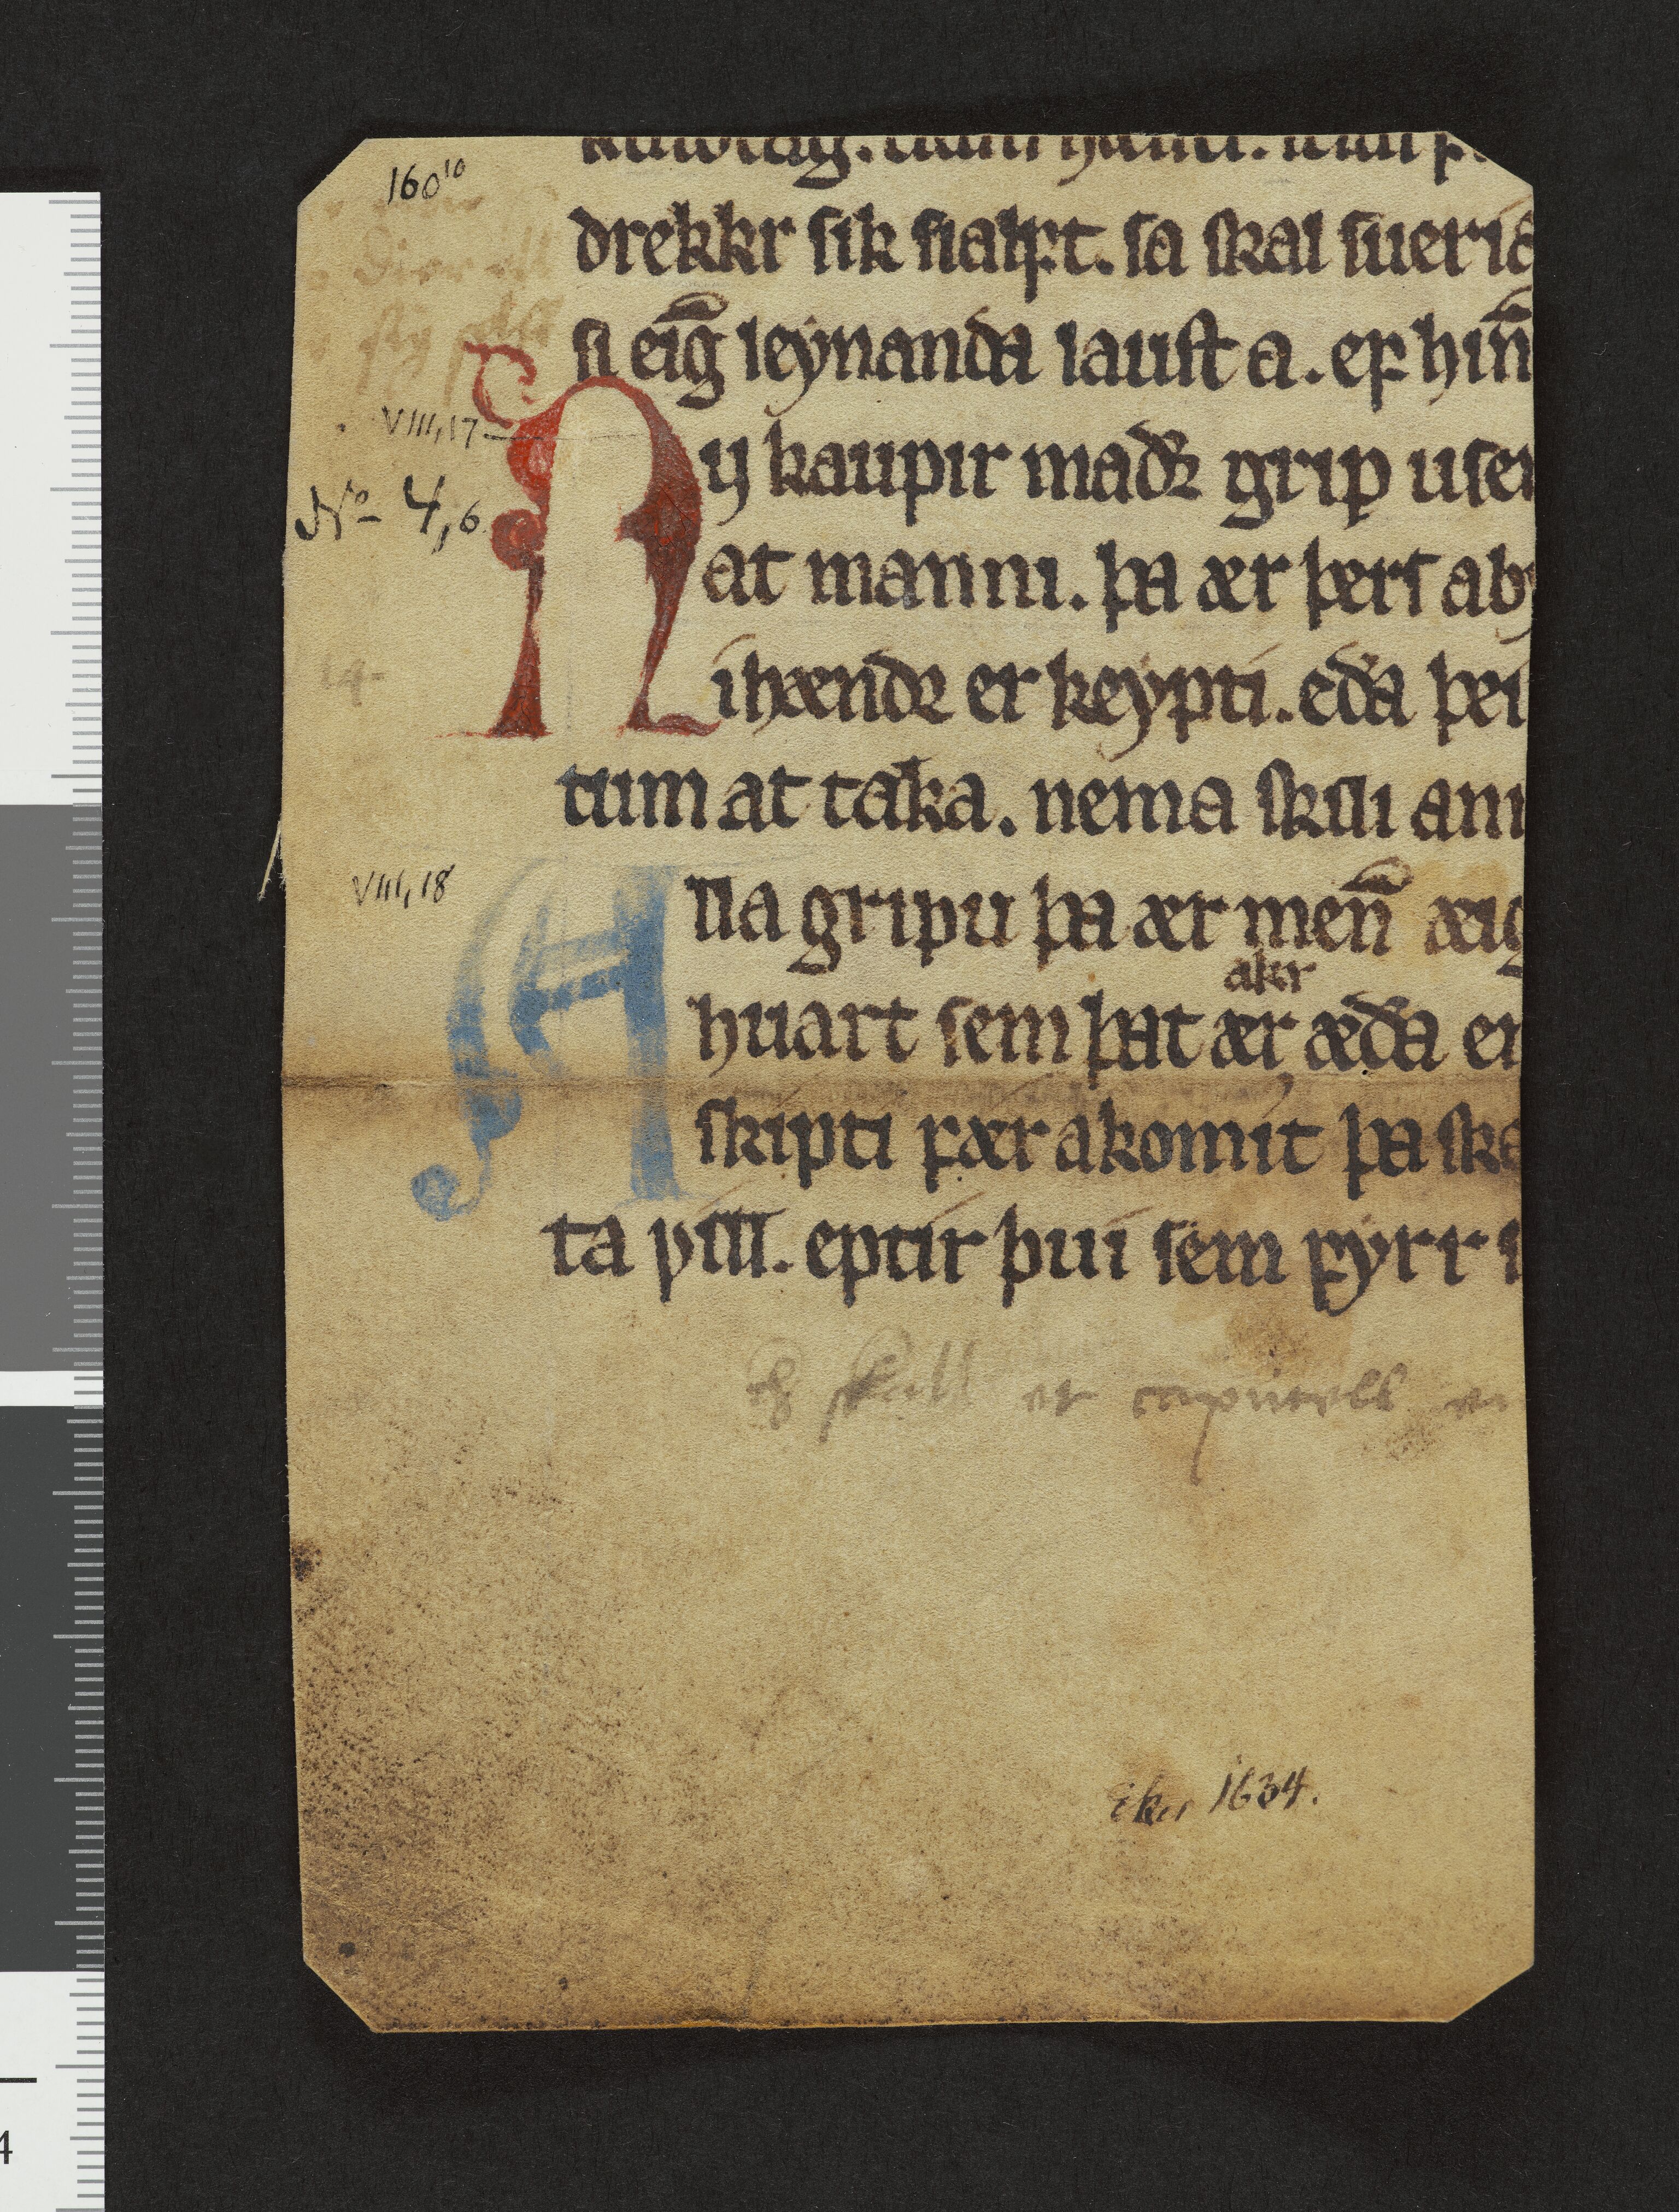 160¹⁰
drekkr sik sialft. sa skal sueria
si eīg leynanda laust a. ef hin̄
VIII,17
Ny kaupir madꝛ grip usen
Nº 4,6
at manni. þa ær þers aby
i hændꝛ er keypti. eda þei
14-
tum at taka. nema skili ann
VIII,18
Alla gripu þa ær men̄ æig
altr
huart sem þat ær æda en
skipti fær akomit þa ska
ta vill. eptir þui sem fyrr s
skall et capittell
iker 1634.